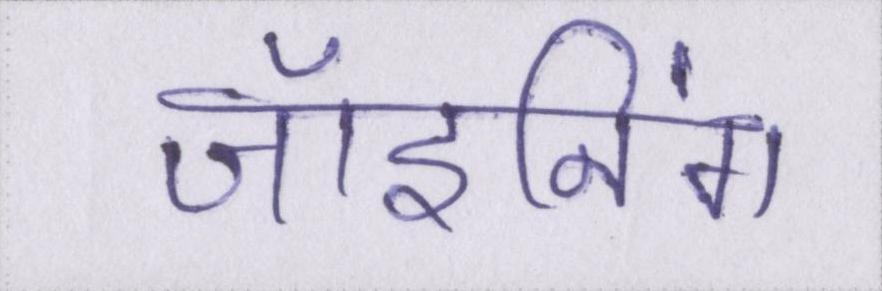 जॉइनिंग